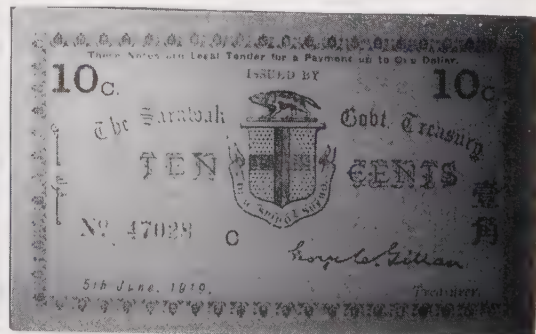 These Notes are Legal Tender for a Payment up to One Dollar.
10c. ISSUED BY 10c
The Sarawak Govt Treasury
TEN CENTS
壹角
No 47028 C
George C. Gillan
5th June, 1919. Treasurer.